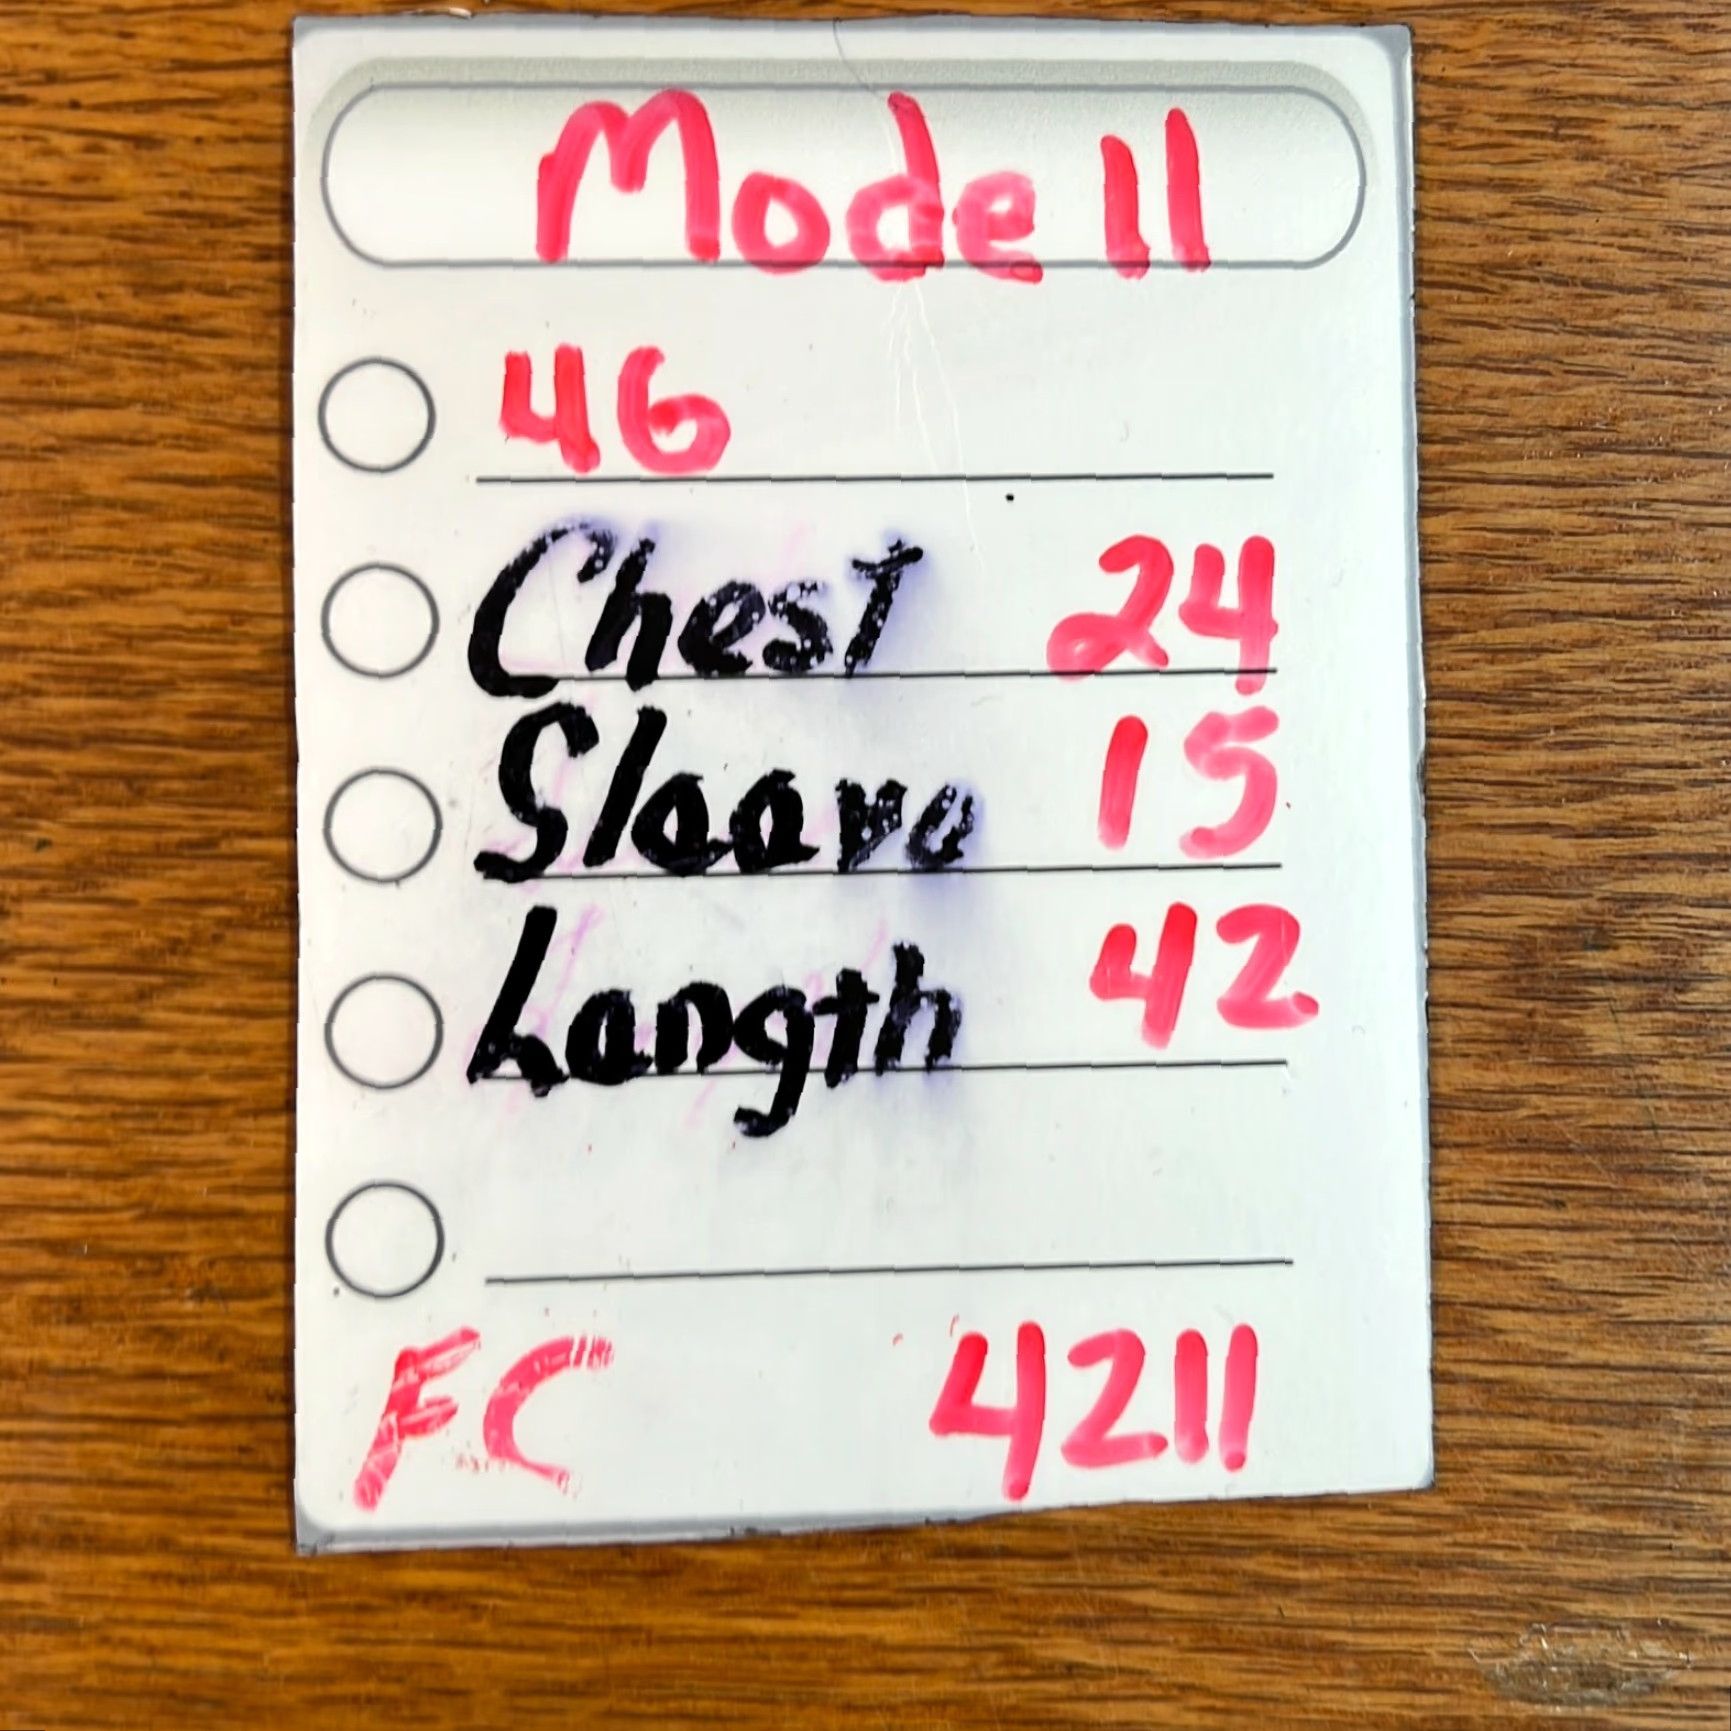 Modell
46
Chest 24
Sleeve 15
Length 42
FC 4211